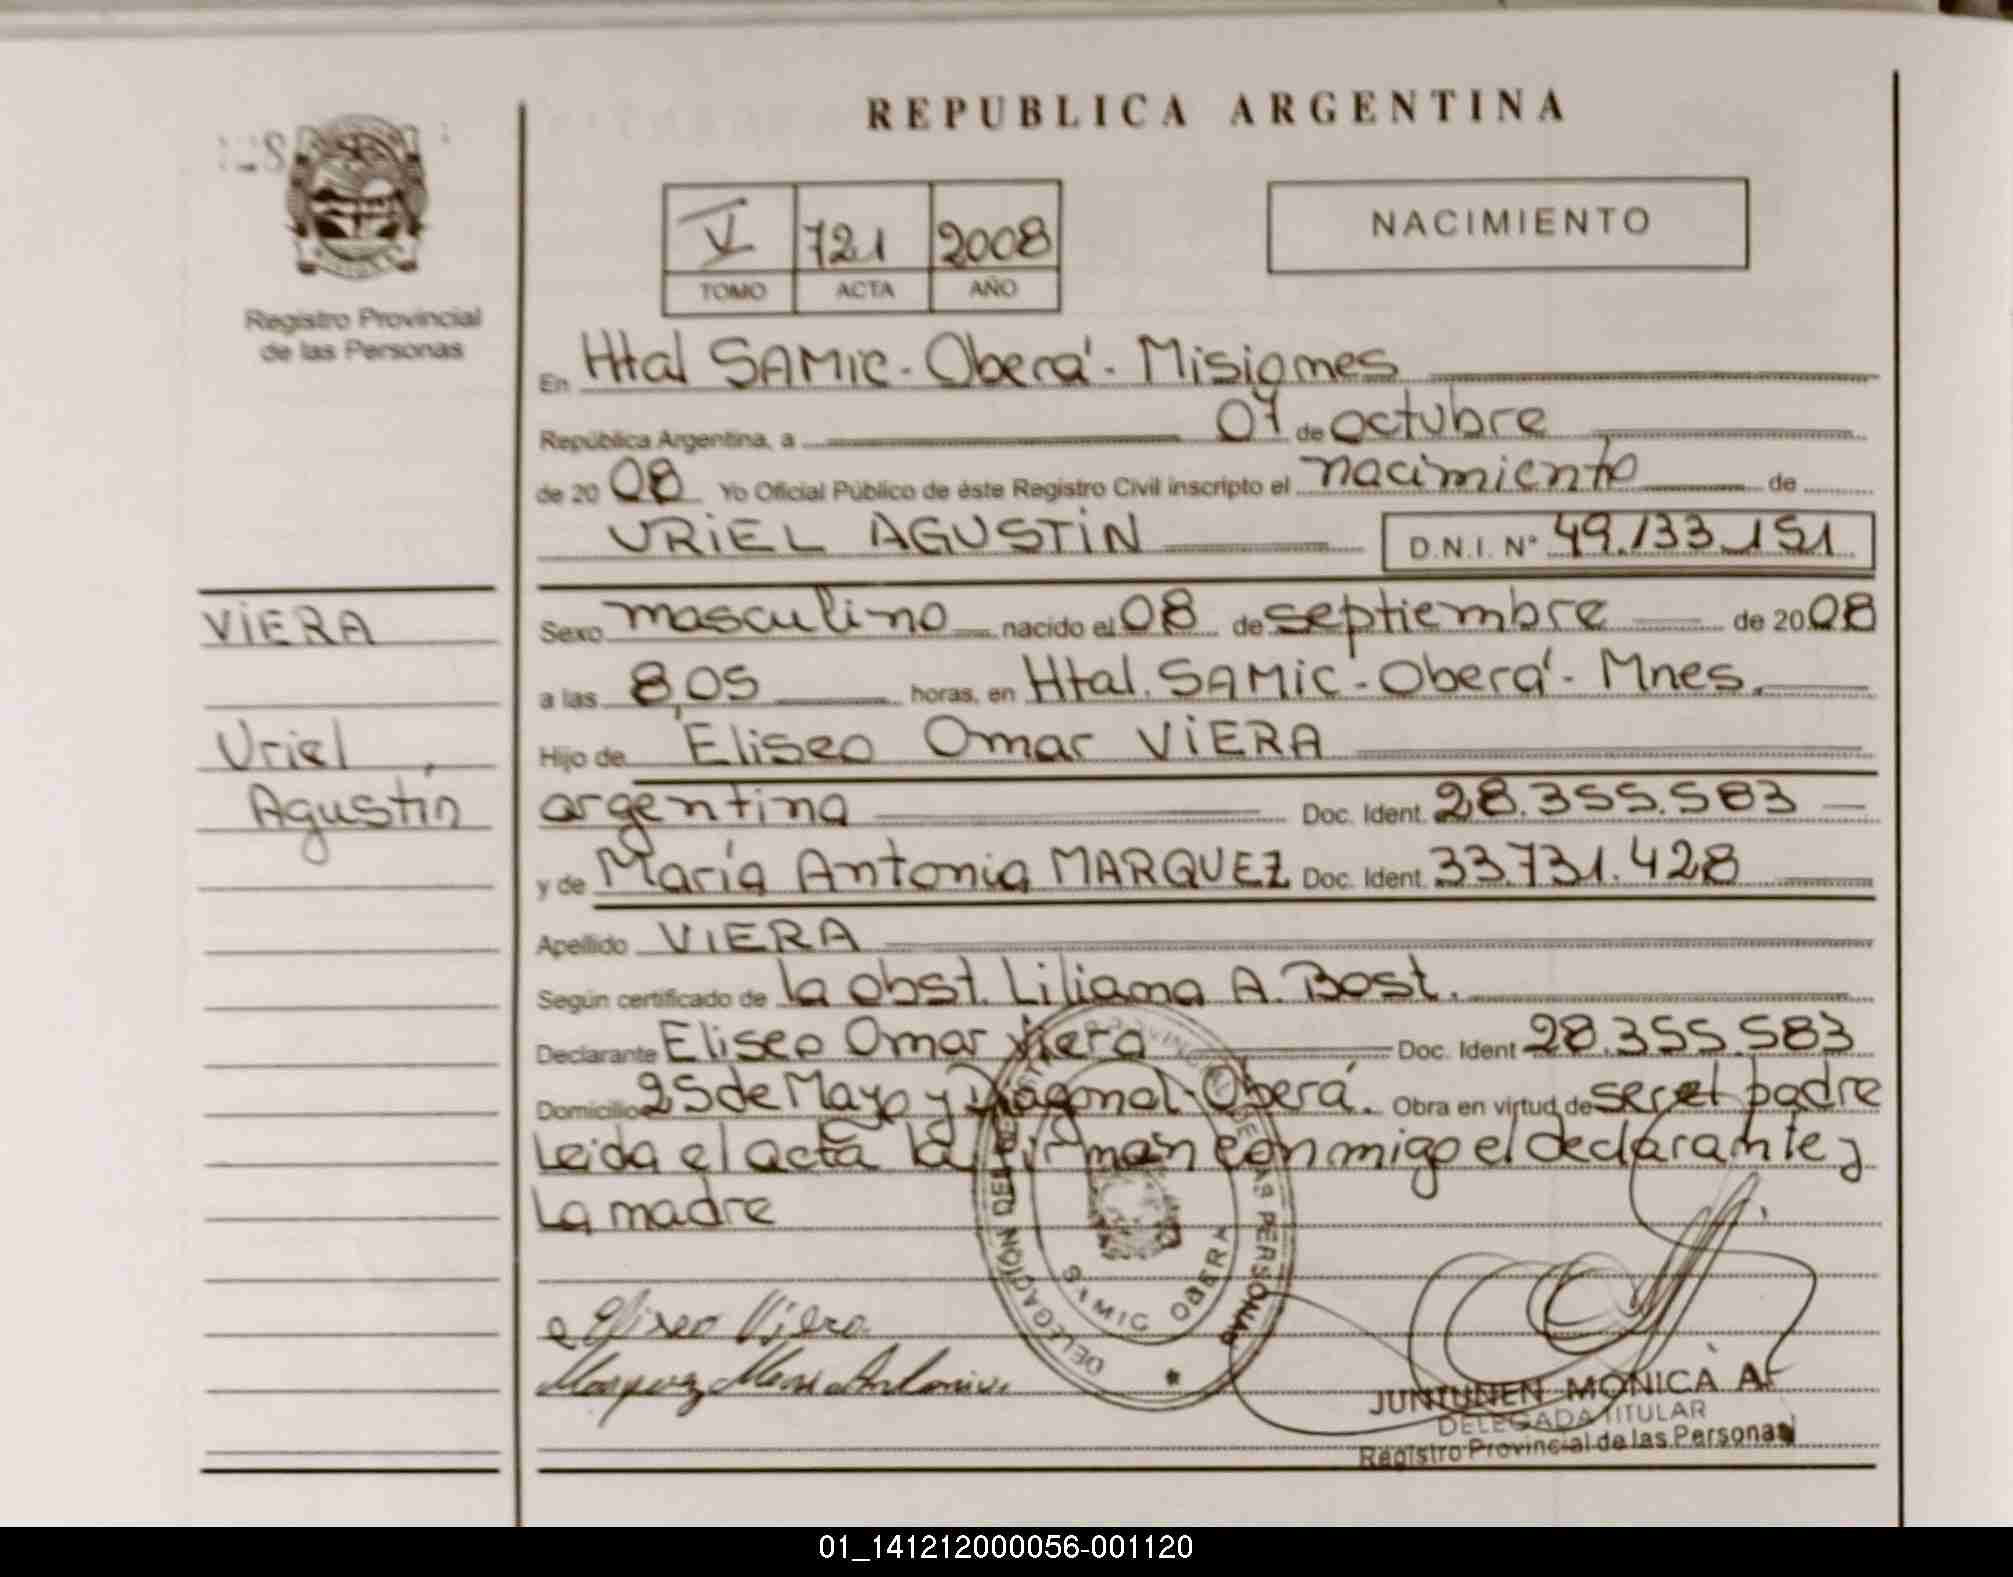 REPUBLICA ARGENTINA
V 721 2008
TOMO ACTA AÑO
NACIMIENTO
Registro Provincial
de las Personas
En Htal SAMIC - Oberá - Misiones
República Argentina, a 07 de octubre
de 2008 Yo Oficial Público de éste Registro Civil inscripto el nacimiento de
URIEL AGUSTÍN D.N.I. N° 49.133.151
VIERA
Uriel
Agustín
Sexo masculino nacido el 08 de septiembre de 2008
a las 8,05 horas, en Htal. SAMIC - Oberá - Mnes.
Hijo de Eliseo Omar VIERA
argentina Doc. Ident. 28.355.583
y de María Antonia MARQUEZ Doc. Ident. 33.731.428
Apellido VIERA
Según certificado de la obst. Liliana A. Bost.
Declarante Eliseo Omar Viera Doc. Ident 28.355.583
Domicilio 25 de Mayo y Diagonal - Oberá. Obra en virtud de ser el padre
Leida el acta la firman conmigo el declarante y
La madre
DELEGACIÓN DEL REGISTRO PROVINCIAL DE LAS PERSONAS
SAMIC OBERA
Eliseo Viera
Marquez Maria Antonia
JUNTUNEN MONICA A.
DELEGADA TITULAR
Registro Provincial de las Personas
01_141212000056-001120